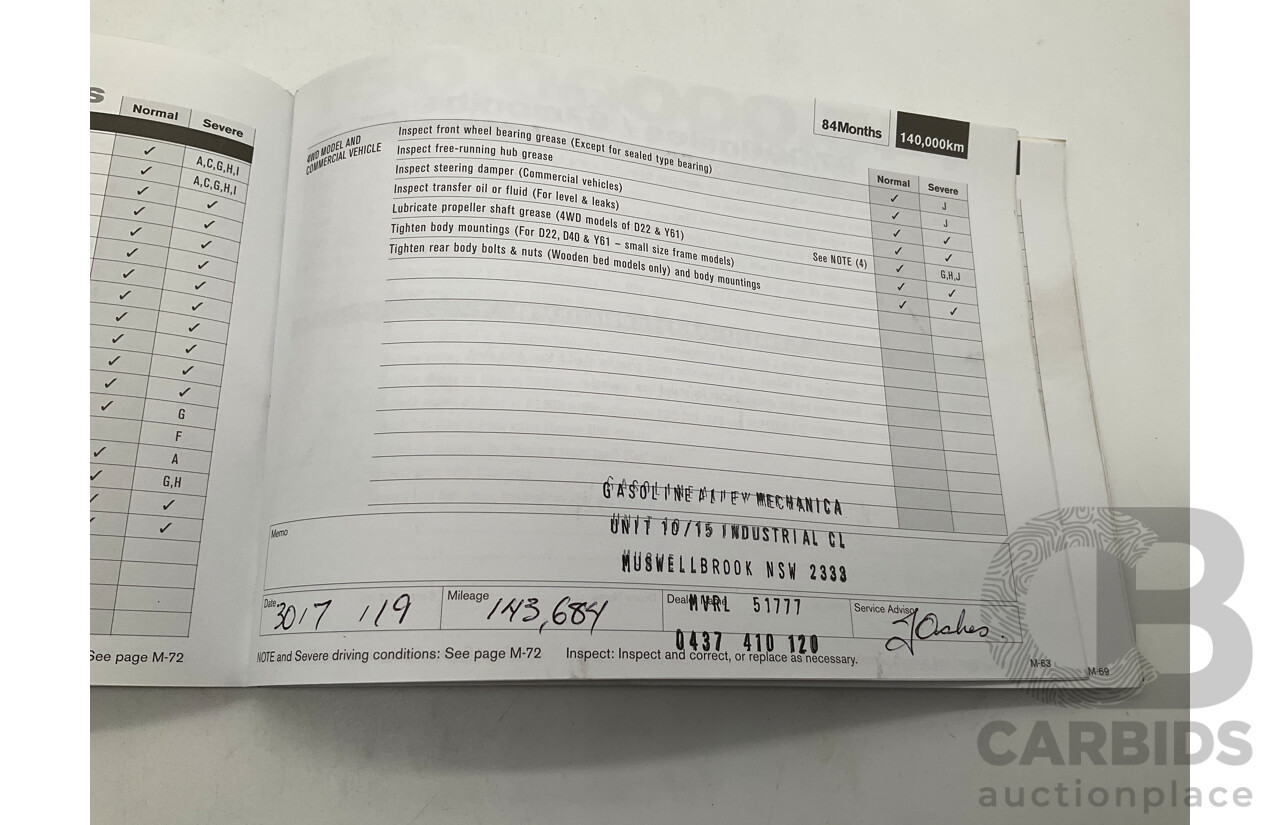 s
Normal Severe
✓ A,C,G,H,I
✓ A,C,G,H,I
✓ ✓
✓ ✓
✓ ✓
✓ ✓
✓ ✓
✓ ✓
✓ ✓
✓ ✓
✓ ✓
✓ ✓
✓ G
F
✓ A
✓ G,H
✓ ✓
✓ ✓
See page M-72
84Months 140,000km
Normal Severe
4WD MODEL AND
COMMERCIAL VEHICLE
Inspect front wheel bearing grease (Except for sealed type bearing) ✓ J
Inspect free-running hub grease ✓ J
Inspect steering damper (Commercial vehicles) ✓ ✓
Inspect transfer oil or fluid (For level & leaks) ✓ ✓
Lubricate propeller shaft grease (4WD models of D22 & Y61) See NOTE (4) ✓ G,H,J
Tighten body mountings (For D22, D40 & Y61 – small size frame models) ✓ ✓
Tighten rear body bolts & nuts (Wooden bed models only) and body mountings ✓ ✓
GASOLINE ALLEY MECHANICA
UNIT 10/15 INDUSTRIAL CL
MUSWELLBROOK NSW 2333
MVRL 51777
0437 410 120
Memo
Date 30/7 /19 Mileage 143,684 Service Advisor
NOTE and Severe driving conditions: See page M-72 Inspect: Inspect and correct, or replace as necessary.
M-63
M-69
CARBIDS
auctionplace